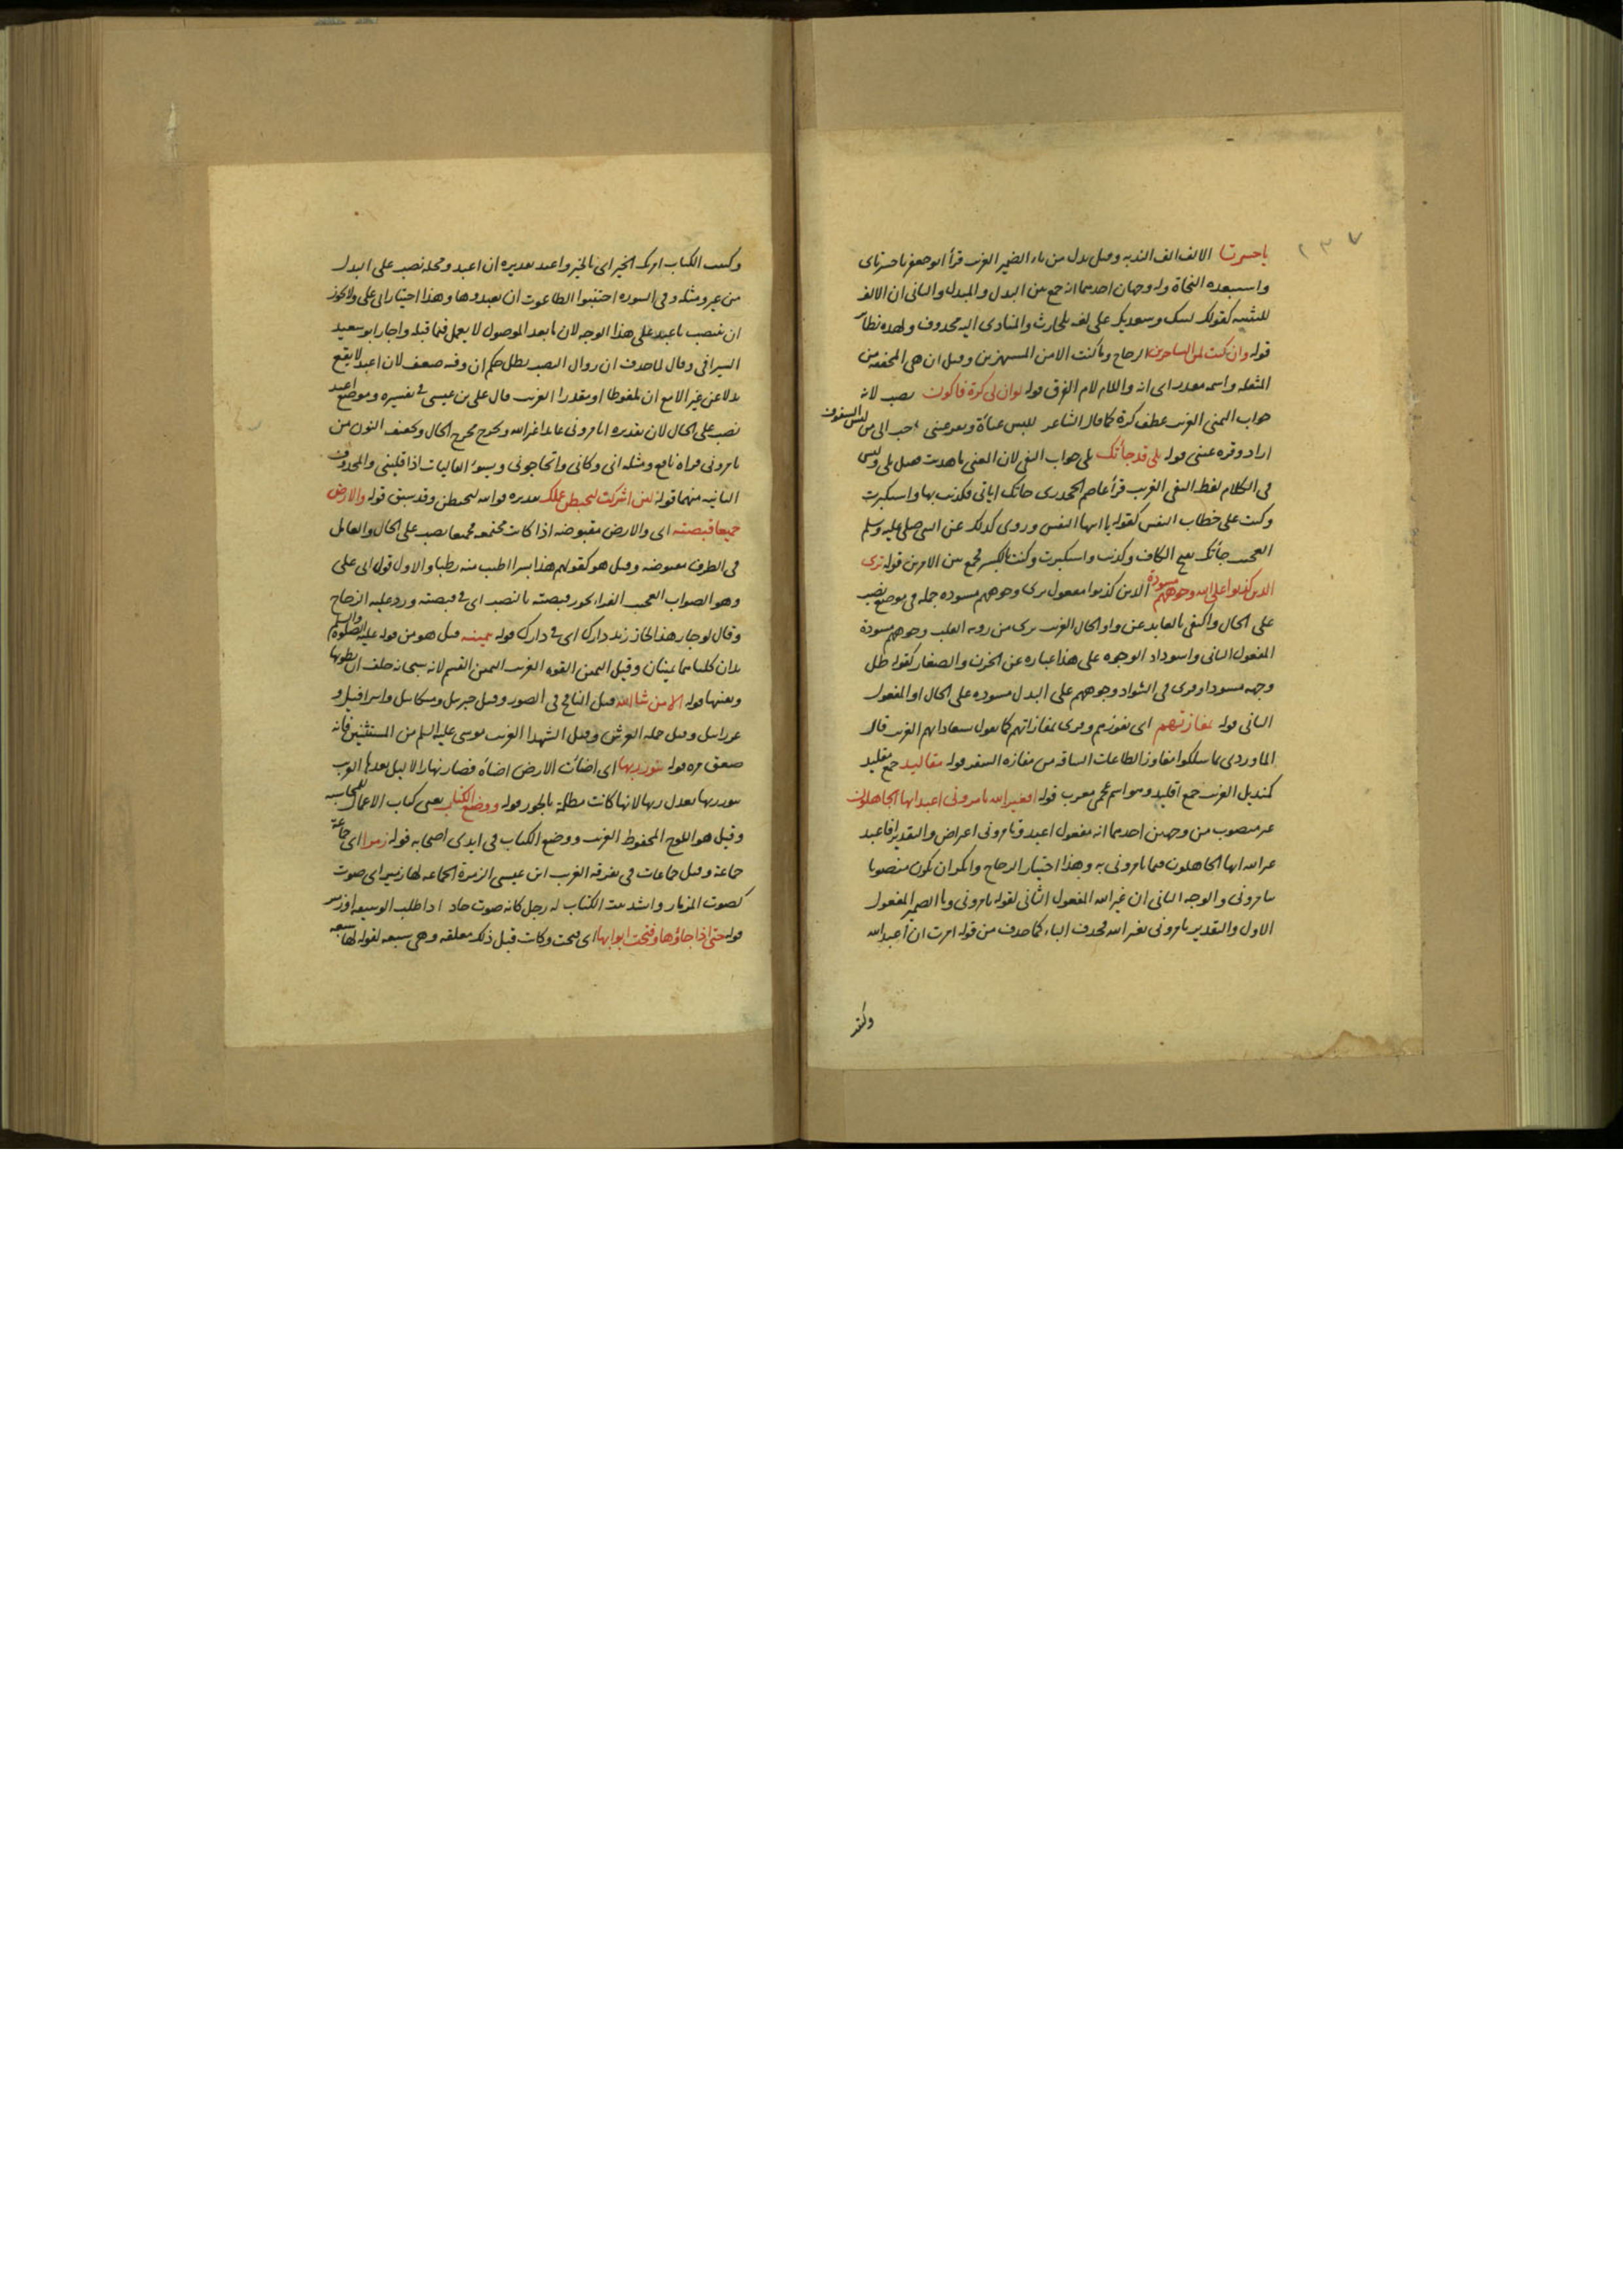 ٢٣٧
ياحسرتا الالف الف الندبه وقيل بدل من ياء الضمير الغريب قرأ ابو جعفر ياحسرتاى
واستبعده النحاة وله وجهان احدهما انه جمع بين البدل والمبدل والثانى ان الالف
للتثنيه كقولك لبيك وسعديك على لغه بلحارث والمنادى اليه محذوف ولهذه نظائر
قوله وان كنت لمن الساخرين الزجاج وما كنت الا من المستهزين وقيل ان هى المخففه من
المثقله واسمه مقدر اى انه واللام لام الفرق قوله لو ان لى كرة فاكون نصب لانه
جواب التمنى الغريب عطف كرة كما قال الشاعر للبس عباءة وتقر عينى احب الى من لبس الشفوف
اراد وقره عينى قوله بلى قد جاءتك بلى جواب النفى لان المعنى ما هديت فقيل بلى وليس
فى الكلام لفظ النفى الغريب قرأ عاصم الجحدرى جاتك اياتى فكذبت بها واستكبرت
وكنت على خطاب النفس كقوله يا ايها النفس وروى كذلك عن النبى صلى عليه وسلم
العجب جاءتك بفتح الكاف وكذبت واستكبرت وكنت بالكسر فجمع بين الامرين قوله ترى
الذين كذبوا على الله وجوههم مسودة الذين كذبوا مفعول ترى وجوههم مسوده جمله فى موضع نصب
على الحال واكتفى بالعايد عن واو الحال الغريب ترى من رويه القلب وجوههم مسودة
المفعول الثانى واسوداد الوجوه على هذا عباره عن الحزن والصغار كقوله ظل
وجهه مسودا وقرى فى الشواذ وجوههم على البدل مسوده على الحال او المفعول
الثانى قوله بمفازتهم اى بفوزهم وقرى بمفازاتهم كما تقول سعاداتهم الغريب قال
الماوردى بما سلكوا مفاوز الطاعات الشاقه من مفازه السفر قوله مقاليد جمع مقليد
كمنديل الغريب جمع اقليد وهو اسم عجمى معرب قوله افغير الله تامرونى اعبد ايها الجاهلون
غير منصوب من وجهين احدهما انه مفعول اعبد وتامرونى اعراض والتقدير افاعبد
غير الله ايها الجاهلون فيما تامرونى به وهذا اختيار الزجاج وانكر ان يكون منصوبا
بتامرونى والوجه الثانى ان غير الله المفعول الثانى لقوله تامرونى ويا الضمير المفعول
الاول والتقدير تامرونى بغير الله فحذف الباء كما حذف من قوله امرت ان اعبد الله
وكتب الكتاب امرتك الخير اى بالخير واعبد تقديره ان اعبد ومحله نصب على البدل
من غير ومثله وفى السوره اجتنبوا الطاغوت ان يعبدوها وهذا اختيار ابى على ولا يجوز
ان ينتصب باعبد على هذا الوجه لان ما بعد الموصول لا يعمل فيما قبله واجاز ابو سعيد
السيرافى وقال لما حذف ان زوال النصب بطل حكم ان وفيه ضعف لان اعبد لا يقع
بدلا عن غير الا مع ان ملفوظا او مقدرا الغريب قال على بن عيسى فى تفسيره وموضع اعبد
نصب على الحال لان تقديره اتامرونى عابدا غير الله وتخرج مخرج الحال وتخفيف النون من
تامرونى قراه نافع ومثله انى وكانى واتحاجونى ويسوء الغاليات اذا فلينى والمحذوف
الثانيه منهما قوله لئن اشركت ليحبطن عملك تقديره فوالله ليحبطن وقد سبق قوله والارض
جميعا قبضته اى والارض مقبوضه اذا كانت مجتمعه فجميعا نصب على الحال والعامل
فى الظرف مقبوضه وقيل هو كقولهم هذا بسرا اطيب منه رطبا والاول قول ابى على
وهو الصواب العجب الفراء يجوز قبضته بالنصب اى فى قبضته ورد عليه الزجاج
وقال لو جاز هذا لجاز زيد دارك اى فى دارك قوله بيمينه قيل هو من قوله عليه الصلوة والسلم
يدان كلتاهما يمينان وقيل اليمين القوه الغريب اليمين القسم لانه سبحانه حلف ان يطويها
ويفنيها قوله الا من شا الله قيل النافخ فى الصور وقيل جبريل وميكاييل واسرافيل و
عزراييل وقيل حمله العرش وقيل الشهدا الغريب موسى عليه السلم من المستثنين فانه
صعق مره قوله بنور ربها اى اضاءت الارض اضاءه فصار نهارا لا ليل بعدها الغريب
بنور ربها بعدل ربها لانها كانت مظلمة بالجور قوله ووضع الكتاب يعنى كتاب الاعمال للمحاسبه
وقيل هو اللوح المحفوظ الغريب ووضع الكتاب فى ايدى اصحابه قوله زمرا اى جماعة
جماعة وقيل جماعات فى تفرقه الغريب ابن عيسى الزمرة الجماعه لها زمير اى صوت
كصوت المزمار وانشد بيت الكتاب له زجل كانه صوت حاد اذا طلب الوسيقه او زمير
قوله حتى اذا جاؤها وفتحت ابوابها اى فتحت وكانت قبل ذلك مغلقه وهى سبعه لقوله لها سبعه